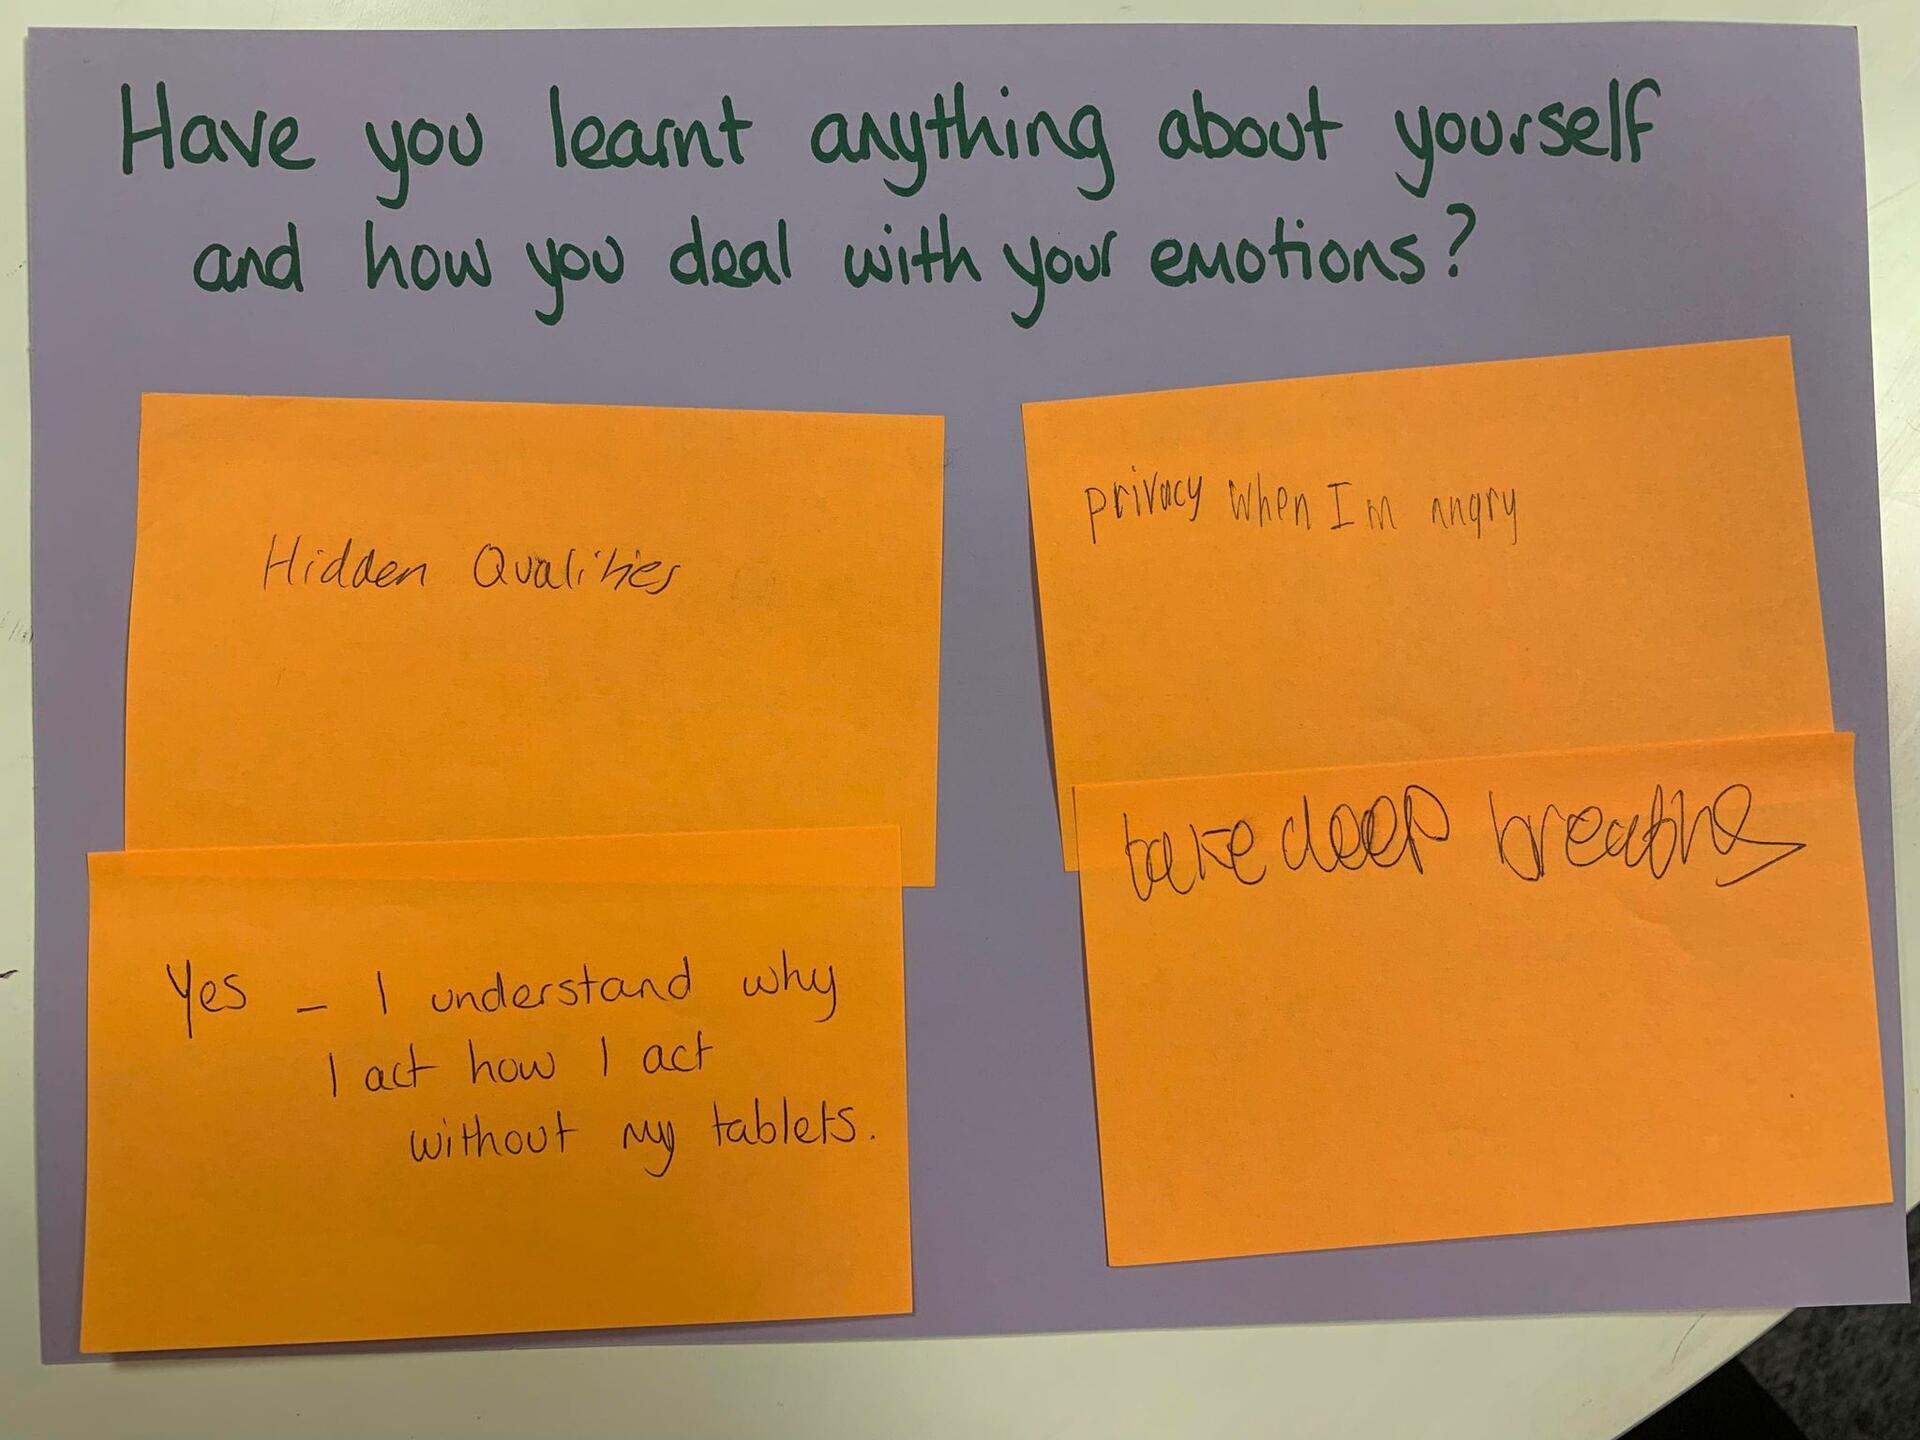 Have you learnt anything about yourself
and how you deal with your emotions?
Hidden Qualities
privacy when I m angry
Yes – I understand why
I act how I act
without my tablets.
take deep breaths